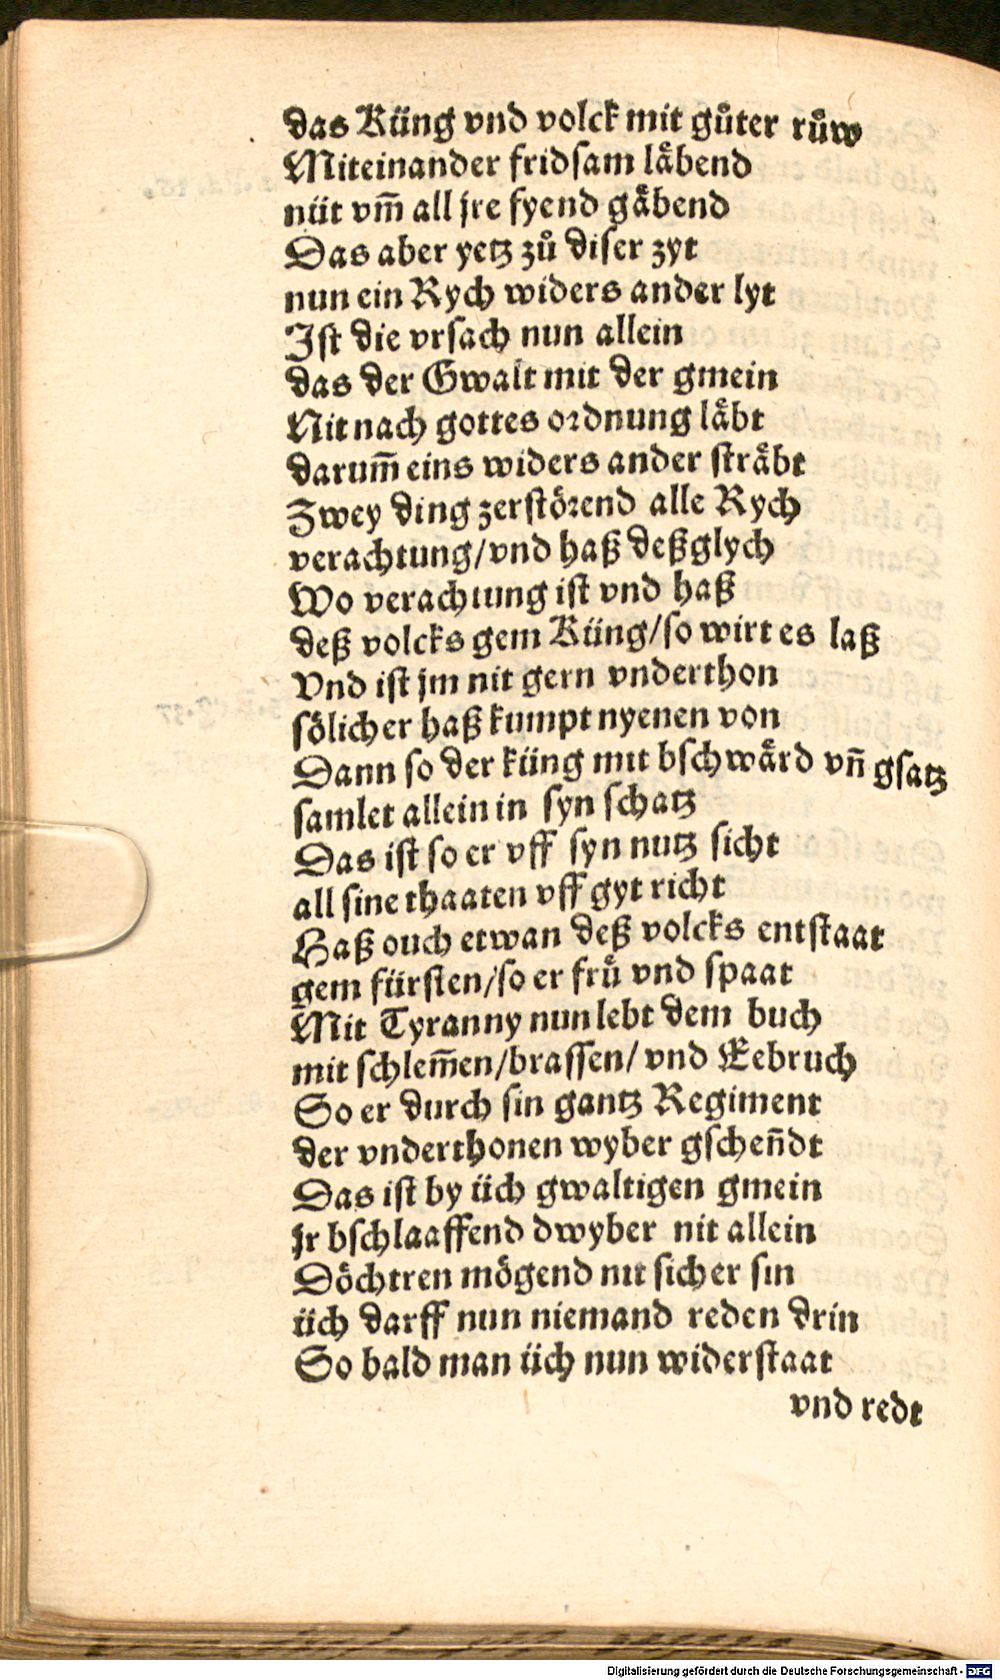 das Küng vnd volck mit gůter růw
Miteinander fridsam låbend
nüt vm̄ all jre fyend gåbend
Das aber yetz zů diser zyt
nun ein Rych widers ander lyt
Ist die vrsach nun allein
das der Gwalt mit der gmein
Nit nach gottes ordnung låbt
darum̄ eins widers ander stråbt
Zwey ding zerstörend alle Rych
verachtung/vnd haß deßglych
Wo verachtung ist vnd haß
deß volcks gem Küng/so wirt es laß
Vnd ist jm nit gern vnderthon
sölicher haß kumpt nyenen von
Dann so der küng mit bschwård vn̄ gsatz
samlet allein in syn schatz
Das ist so er vff syn nutz sicht
all sine thaaten vff gyt richt
Haß ouch etwan deß volcks entstaat
gem fürsten/so er frů vnd spaat
Mit Tyranny nun lebt dem buch
mit schlem̄en/brassen/ vnd Eebruch
So er durch sin gantz Regiment
der vnderthonen wyber gschen̄dt
Das ist by üch gwaltigen gmein
jr bschlaaffend dwyber nit allein
Döchtren mögend nit sicher sin
üch darff nun niemand reden drin
So bald man üch nun widerstaat
vnd redt
Digitalisierung gefördert durch die Deutsche Forschungsgemeinschaft - DFG